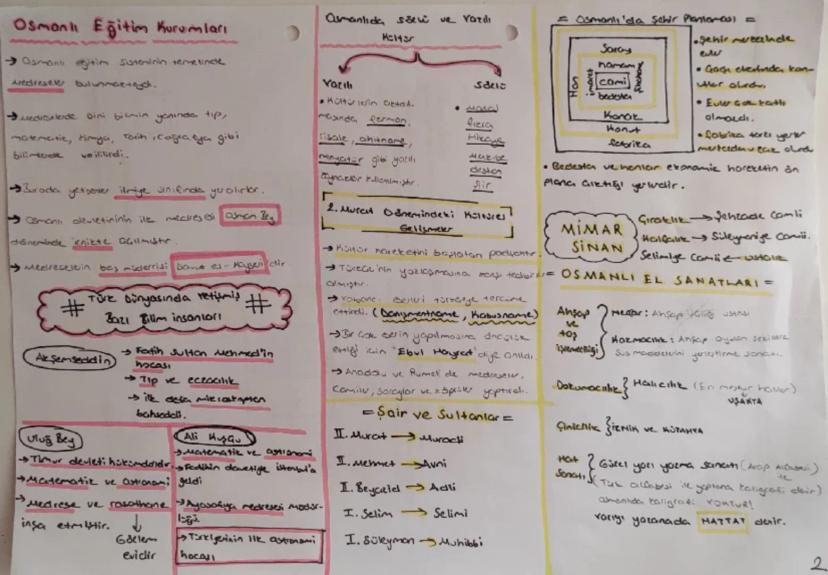 Osmanlı Eğitim Kurumları
→ Osmanlı eğitim sisteminin temelinde
medreseler bulunmaktaydı.
→ Medreselerde dini bilimin yanında tıp,
matematik, kimya, tarih, coğrafya gibi
bilimlerde verilirdi.
→ Burada yetişenler ilmiye sınıfında yer alırlar.
→ Osmanlı devletinin ilk medresesi Osman Bey
döneminde iznikte açılmıştır.
→ Medresenin baş müderrisi Davud el-Kayseri dir
# Türk Dünyasında Yetişmiş #
Bazı Bilim insanları
Akşemseddin
→ Fatih Sultan Mehmed'in
hocası
→ Tıp ve eczacılık
→ ilk defa mikroptan
bahsedeli.
Uluğ Bey
→ Timur devleti hükümdarıdır.
→ Matematik ve astronomi
→ Medrese ve rasathane
inşa etmiştir.
↓
Gözlem
evidir
Ali Kuşçu
→ Matematik ve astronomi
→ Fatihin davetiyle istanbul'a
geldi
→ Ayasofya medresesi müdür-
lüğü
→ Türklerinin ilk astronomi
hocası
Osmanlıda sözlü ve Yazılı
Kültür
Yazılı
• Kültürlerin
ferman,
risale, ahitname,
minyatür gibi yazılı
kaynaklar kullanılmıştır.
Sözlü
• Masal
fıkra
Hikaye
destan
şiir
2. Murat Dönemindeki Kültürel
Gelişmeler
→ Kültür hareketini başlatan padişahtır.
→ Türkçe'nin yazılmasına karşı tedbirler
almıştır.
→ Yabancı eserleri türkçeye tercüme
ettirdi. (Danişmentname, Kabusname)
→ Bir çok eserin yapılmasına öncülük
ettiği için "Ebul Hayrat" diye anıldı.
→ Anadolu ve Rumeli'de medreseler,
Camiler, Saraylar ve köprüler yaptırdı.
= Şair ve Sultanlar =
II. Murat → Muradi
II. Mehmet → Avni
II. Beyazid → Adli
I. Selim → Selimi
I. Süleyman → Muhibbi
= Osmanlı'da Şehir Planlaması =
Saray
hamam
Han
imaret
cami
bedesten
Konak
Konut
fabrika
• Şehir merkezinde
evler
• Geçiş
konutlar olurdu.
• Evler çok katlı
olmazdı.
• fabrika tarzı yerler
merkezden uzak olurdu
• Bedesten ve hanlar ekonomik hareketin ön
plana çıktığı yerlerdir.
MİMAR
SİNAN
Çıraklık → Şehzade Camii
Kalfalık → Süleymaniye Camii.
Selimiye Camii ← ustalık
= OSMANLI EL SANATLARI =
Ahşap
ve
taş
işlemeciliği
Neccar: Ahşap ustası
Kakmacılık: Ahşap oyulan
Süs maddelerini yerleştirme sanatı.
Dokumacılık } Halıcılık (En meşhur halılar)
UŞAKTA
Çinicilik } İZNİK ve KÜTAHYA
Hat
Sanatı
Güzel yazı yazma sanatı (Arap Alfabesi) ile
(Türk alfabesi ile yapılana kaligrafi denir)
osmanlıda kaligrafi YOKTUR!
Yazıyı yazanada HATTAT denir.
2